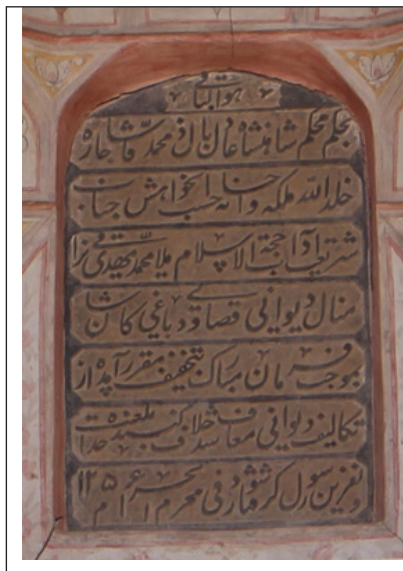 هو الباقی
بحکم محکم شاهنشاه عادل باذل محمد شاه قاجار
خلد الله ملکه و احسانه حسب الخواهش جناب
شریعت آداب حجة الاسلام ملا محمد مهدی نراقی
منال دیوانی قصابی و دباغی کاشان
بموجب فرمان مبارک بتخفیف مقرر آمده از
تکالیف دیوانی معاف شد خلاف کننده بلعنت خدا
و نفرین رسول گرفتار شود فی شهر محرم الحرام ۱۲۵۶